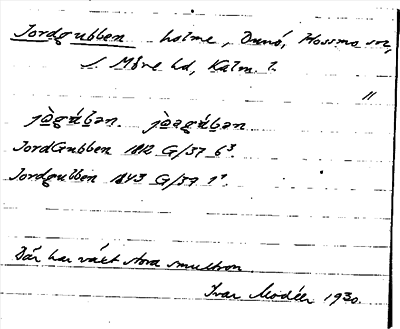 Jordgubben holme, Dunö, Hossmo sn,
S. Möre hd, Kalm. l.
"
jògúban. jòagúban
JordGubben 1812 G/57 6³
Jordgubben 1843 G/59 1²
Där har växt stora smultron.
Ivar Modéer 1930.